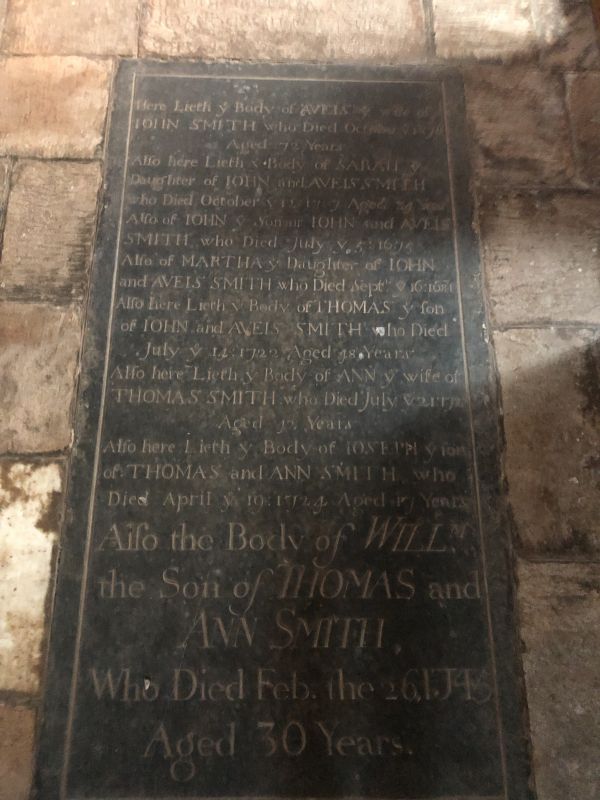 Here Lieth ẏ Body of AVEIS ẏ wife of
IOHN SMITH who Died October ẏ
Aged 72 Years
Alſo here Lieth ẏ Body of SARAH ẏ
Daughter of IOHN and AVEIS SMITH
who Died October ẏ Aged Years
Alſo of IOHN ẏ Son of IOHN and AVEIS
SMITH who Died July ẏ 5: 1675
Alſo of MARTHA ẏ Daughter of IOHN
and AVEIS SMITH who Died Sept. ẏ 16: 1681
Alſo here Lieth ẏ Body of THOMAS ẏ ſon
of IOHN and AVEIS SMITH who Died
July ẏ 14: 1722 Aged 48 Years
Alſo here Lieth ẏ Body of ANN ẏ wife of
THOMAS SMITH who Died July ẏ
Aged Years
Alſo here Lieth ẏ Body of IOSEPH ẏ ſon
of THOMAS and ANN SMITH who
Died April ẏ 19: 1724 Aged 17 Years
Alſo the Body of WILLᴹ.
the Son of THOMAS and
ANN SMITH,
Who Died Feb. the 26, 1745
Aged 30 Years.